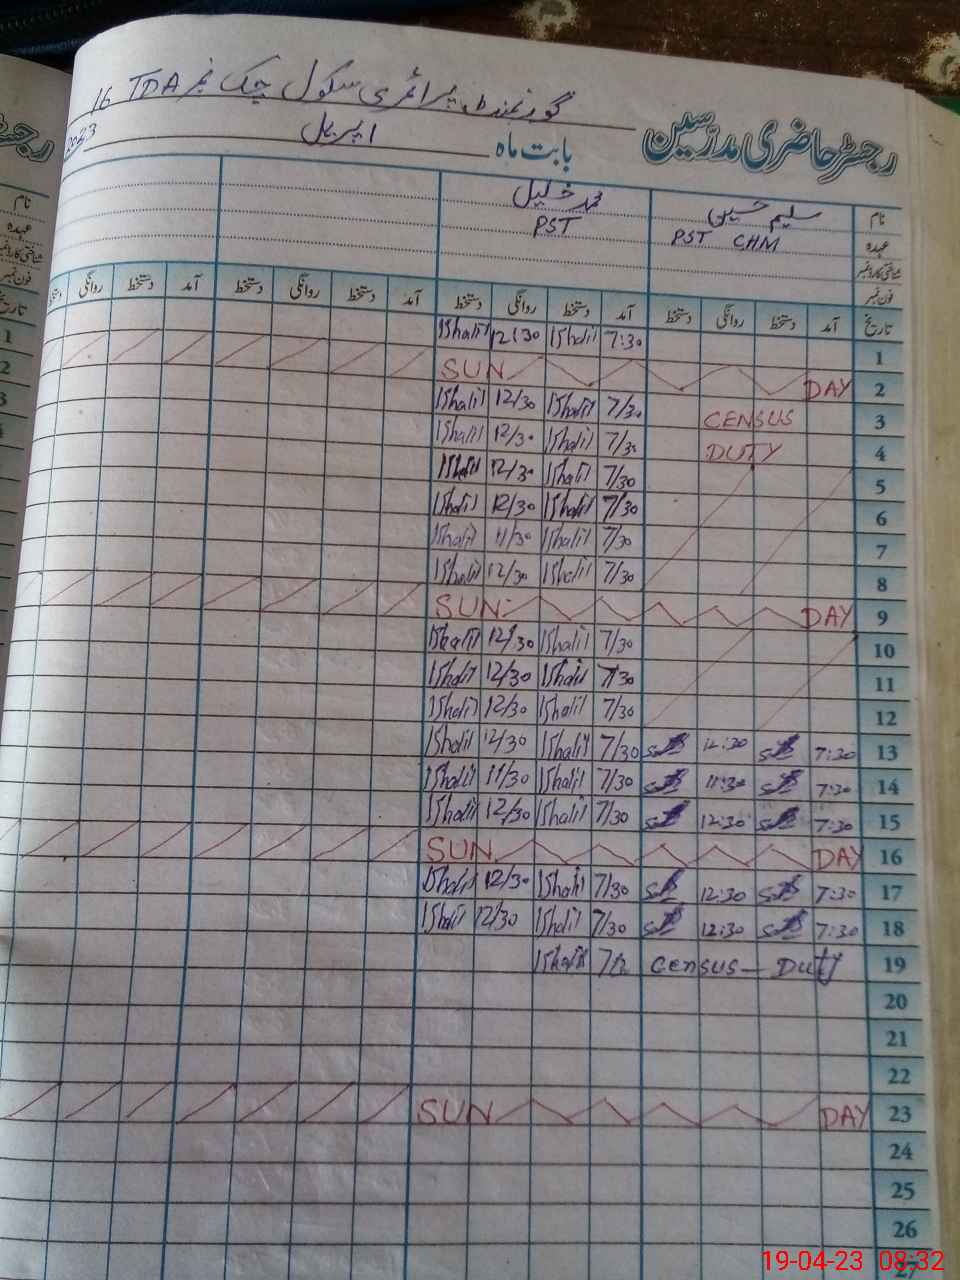 گورنمنٹ پرائمری سکول چک نمبر 16 TDA
رجسٹر حاضری مدرسین
بابت ماہ اپریل 2023
نام سلیم حسین محمد خلیل
عہدہ PST CHM PST
شناختی کارڈ نمبر
فون نمبر
تاریخ آمد دستخط روانگی دستخط آمد دستخط روانگی دستخط آمد دستخط روانگی دستخط آمد دستخط روانگی دستخط
1 7:30 Khalil 12:30 Khalil
2 SUN DAY
3 CENSUS 7/30 Khalil 12/30 Khalil
4 DUTY 7/30 Khalil 12/30 Khalil
5 7/30 Khalil 12/30 Khalil
6 7/30 Khalil 12/30 Khalil
7 7/30 Khalil 11/30 Khalil
8 7/30 Khalil 12/30 Khalil
9 SUN DAY
10 7/30 Khalil 12/30 Khalil
11 7/30 Khalil 12/30 Khalil
12 7/30 Khalil 12/30 Khalil
13 7:30 12:30 7/30 Khalil 12/30 Khalil
14 7:30 11:30 7/30 Khalil 11/30 Khalil
15 7:30 12:30 7/30 Khalil 12/30 Khalil
16 SUN DAY
17 7:30 12:30 7/30 Khalil 12/30 Khalil
18 7:30 12:30 7/30 Khalil 12/30 Khalil
19 Census – Duty Khalil
20
21
22
23 SUN DAY
24
25
26
27
19-04-23 08:32